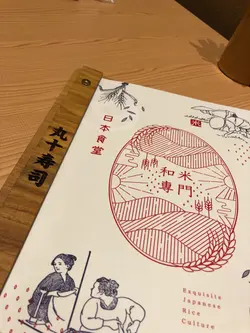 丸十寿司
日本食堂
米
和米
專門
Exquisite
Japanese
Rice
Culture